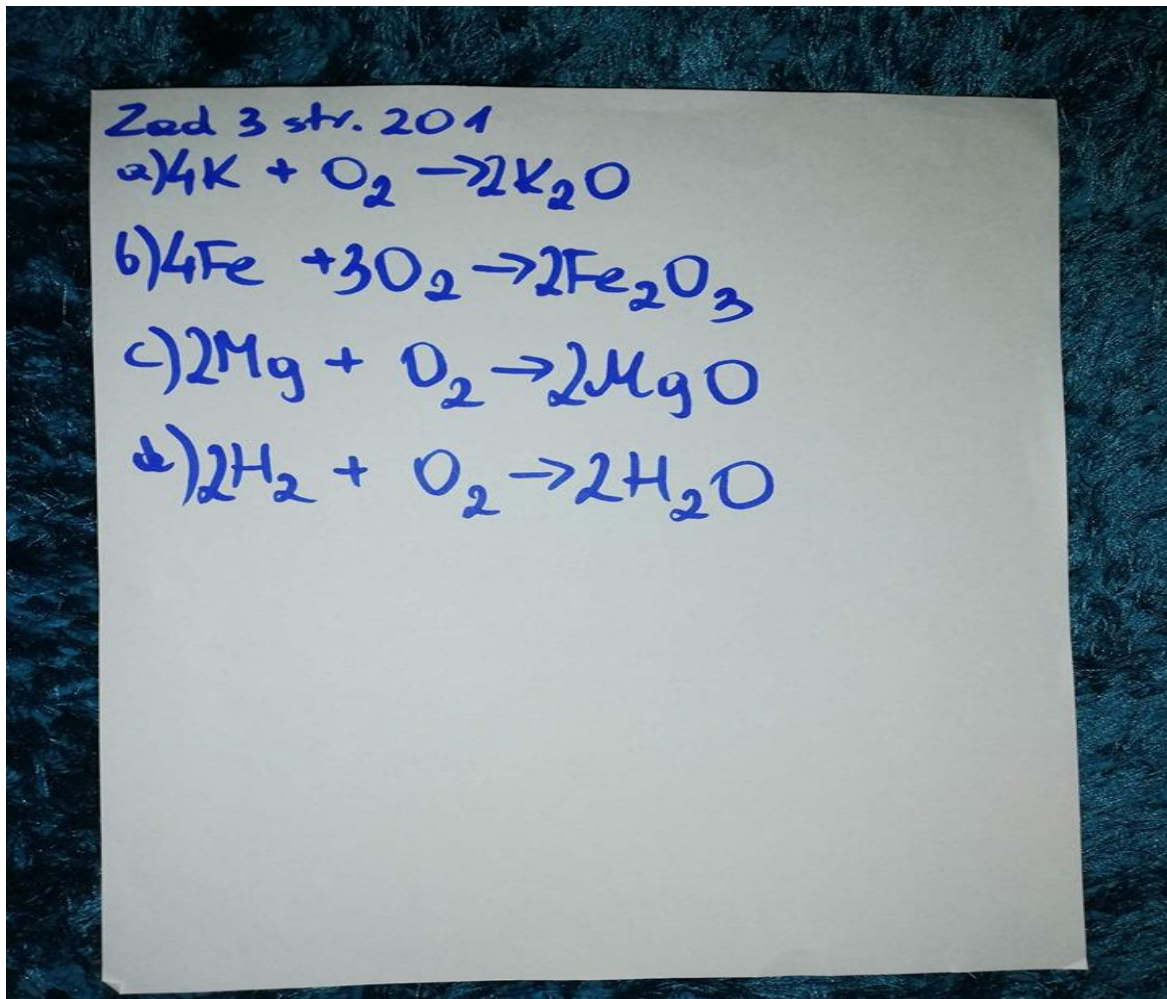 Zad 3 str. 201
a) 4K + O₂ → 2K₂O
b) 4Fe + 3O₂ → 2Fe₂O₃
c) 2Mg + O₂ → 2MgO
d) 2H₂ + O₂ → 2H₂O